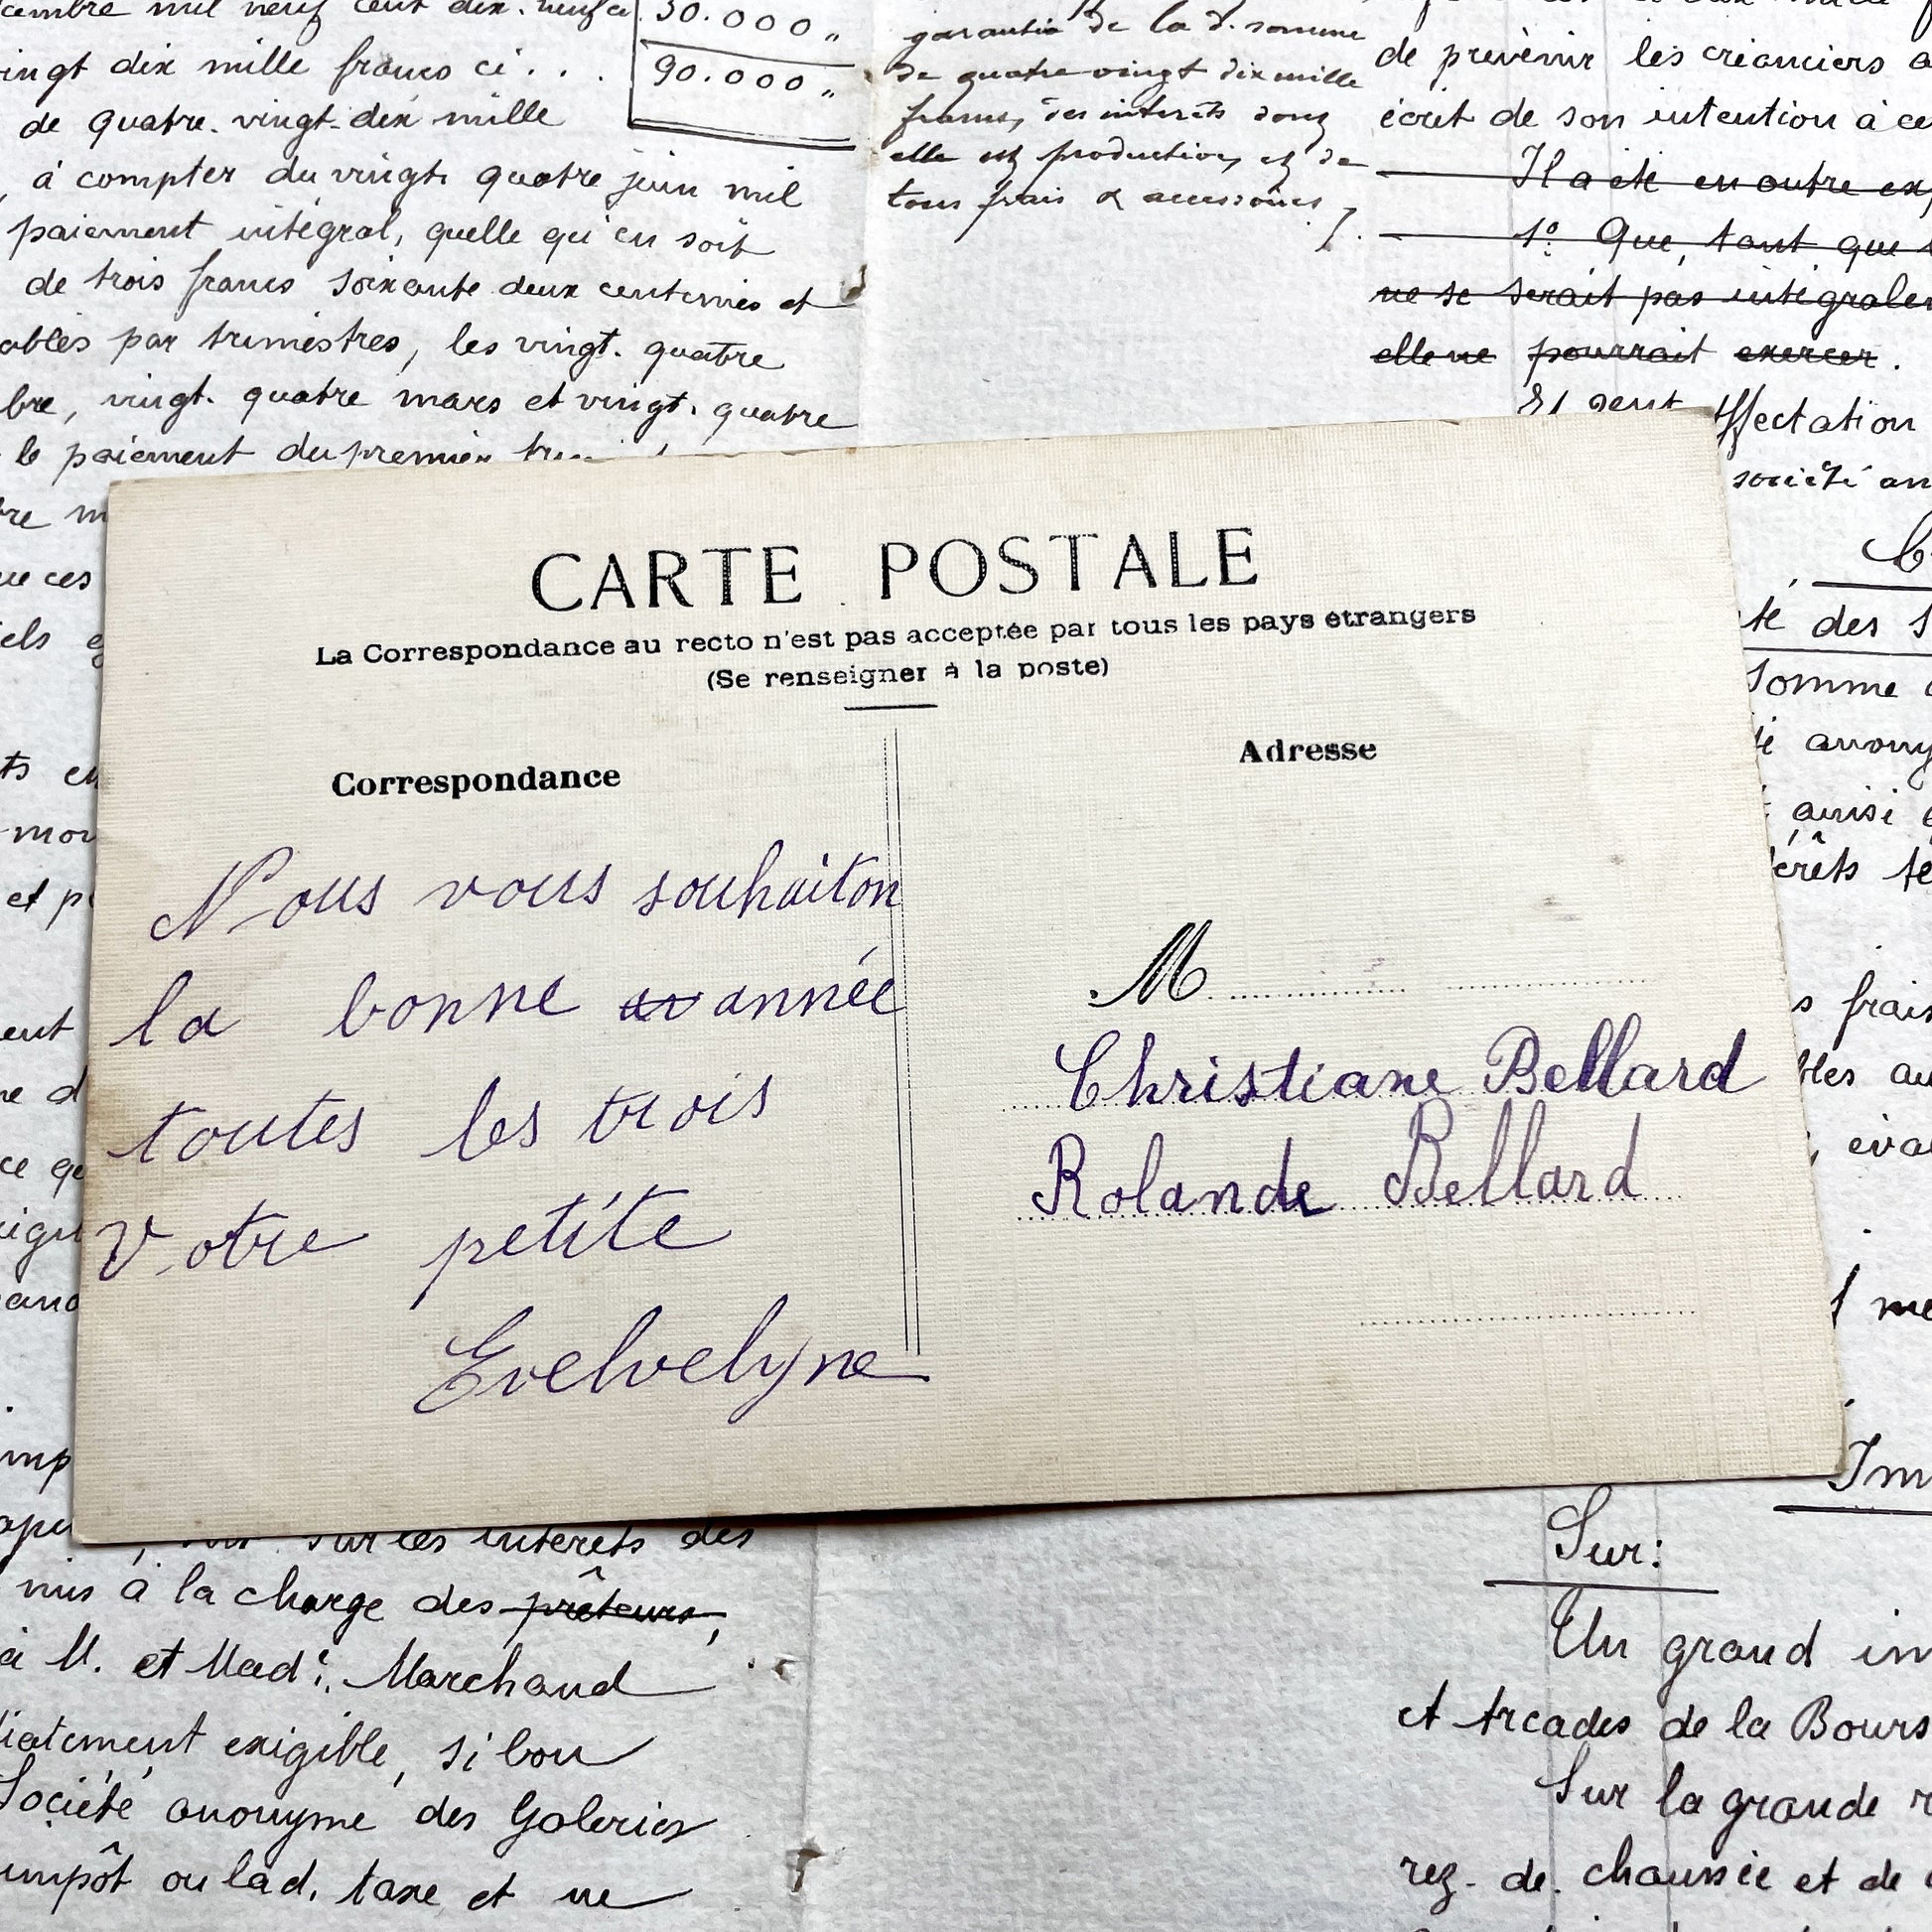 mil neuf cent dix. neuf ci
30.000 "
vingt dix mille francs ci . . .
90.000 "
de quatre. vingt. dix mille
à compter du vingt. quatre juin mil
paiement intégral, quelle qu'en soit
de trois francs soixante deux centimes et
par trimestres, les vingt. quatre
bre, vingt. quatre mars et vingt. quatre
le paiement du premier
garantie de la d. somme
de quatre vingt dix mille
francs, des intérêts dont
elle est productive, et de
tous frais & accessoires
de prévenir les créanciers
écrit de son intention à ce
Il a été en outre
1º Que, tant que
ne se serait pas
elle ne pourrait exercer.
société an
CARTE POSTALE
La Correspondance au recto n'est pas acceptée par tous les pays étrangers
(Se renseigner à la poste)
Correspondance
Nous vous souhaiton
la bonne année
toutes les trois
Votre petite
Evelvelyne
Adresse
M
Christiane Bellard
Rolande Bellard
té des
somme
ainsi
frais
sur les intérêts des
mis à la charge des prêteurs,
à M. et Made. Marchand
exigible, si bon
Société anonyme des Galeries
impôt ou lad. taxe et ne
Sur:
Un grand
et Arcades de la Bours
Sur la grande
rez. de. chaussée et de